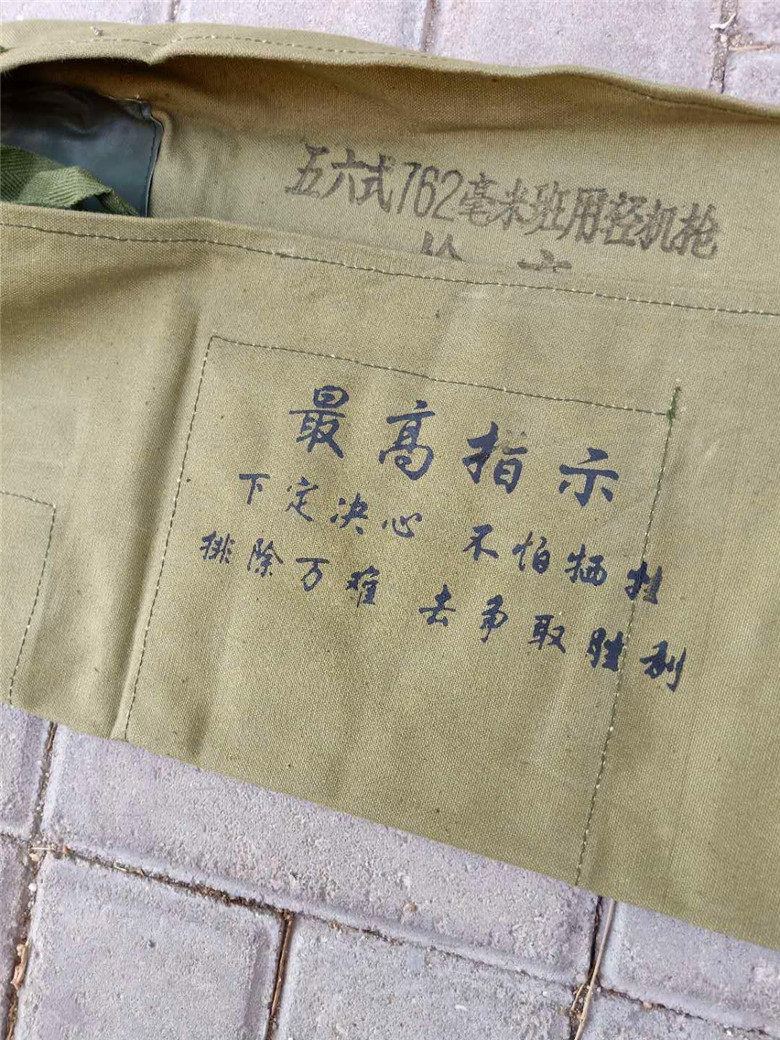 五六式762毫米班用轻机枪
最高指示
下定决心 不怕牺牲
排除万难 去争取胜利